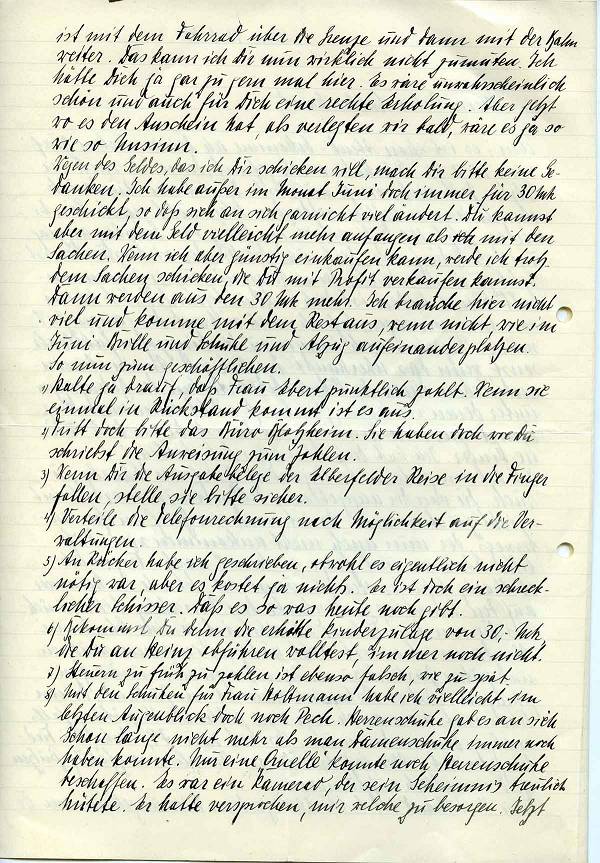 ist mit dem Fahrrad über die Grenze und dann mit der Bahn
weiter. Das kann ich Dir nun wirklich nicht zumuten. Ich
hätte Dich ja gar zu gern mal hier. Es wäre unwahrscheinlich
schön und auch für Dich eine rechte Erholung. Aber jetzt
wo es den Anschein hat, als verlegten wir bald, wäre es ja so
wie so Unsinn.
Wegen des Geldes, das ich Dir schicken will, mach Dir bitte keine Ge-
danken. Ich habe außer im Monat Juni doch immer für 30 Mk
geschickt, so daß sich an sich garnicht viel ändert. Du kannst
aber mit dem Geld vielleicht mehr anfangen als ich mit den
Sachen. Wenn ich aber günstig einkaufen kann, werde ich trotz
dem Sachen schicken, die Du mit Profit verkaufen kannst.
Dann werden aus den 30 Mk mehr. Ich brauche hier nicht
viel und komme mit dem Rest aus, wenn nicht, wie im
Juni Brille und Schuhe und Abzug aufeinanderplatzen.
So nun zum geschäftlichen.
1) Halte ja darauf, daß Frau Ebert pünktlich zahlt. Wenn sie
einmal in Rückstand kommt ist es aus.
2) Tritt doch bitte das Büro Klotzheim. Sie haben doch wie Du
schriebst die Anweisung zum Zahlen.
3) Wenn Dir die Ausgabebelege der Elberfelder Reise in die Finger
fallen, stelle sie bitte sicher.
4) Verteile die Telefonrechnung nach Möglichkeit auf die Ver-
waltungen.
5) An habe ich geschrieben, obwohl es eigentlich nicht
nötig war, aber es kostet ja nichts. Er ist doch ein schreck-
licher Schisser. Daß es so was heute noch gibt.
6) Bekommst Du denn die erhöhte Kinderzulage von 30,- Mk,
die Du an Heinz abführen wolltest, immer noch nicht.
7) Steuern zu früh zu zahlen ist ebenso falsch, wie zu spät.
8) Mit den Schuhen für Frau Holtmann habe ich vielleicht im
letzten Augenblick doch noch Pech. Herrenschuhe gab es an sich
schon lange nicht mehr als man Damenschuhe immer noch
haben konnte. Nur eine Quelle konnte noch Herrenschuhe
beschaffen. Es war ein Kamerad, der sein Geheimnis treulich
hütete. Er hatte versprochen, mir welche zu besorgen. Jetzt